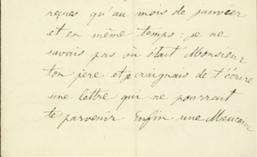 reçues qu'au mois de janvier
et en même temps : je ne
savais pas où était Monsieur
ton père et craignais de t'écrire
une lettre qui ne pourrait
te parvenir Enfin une